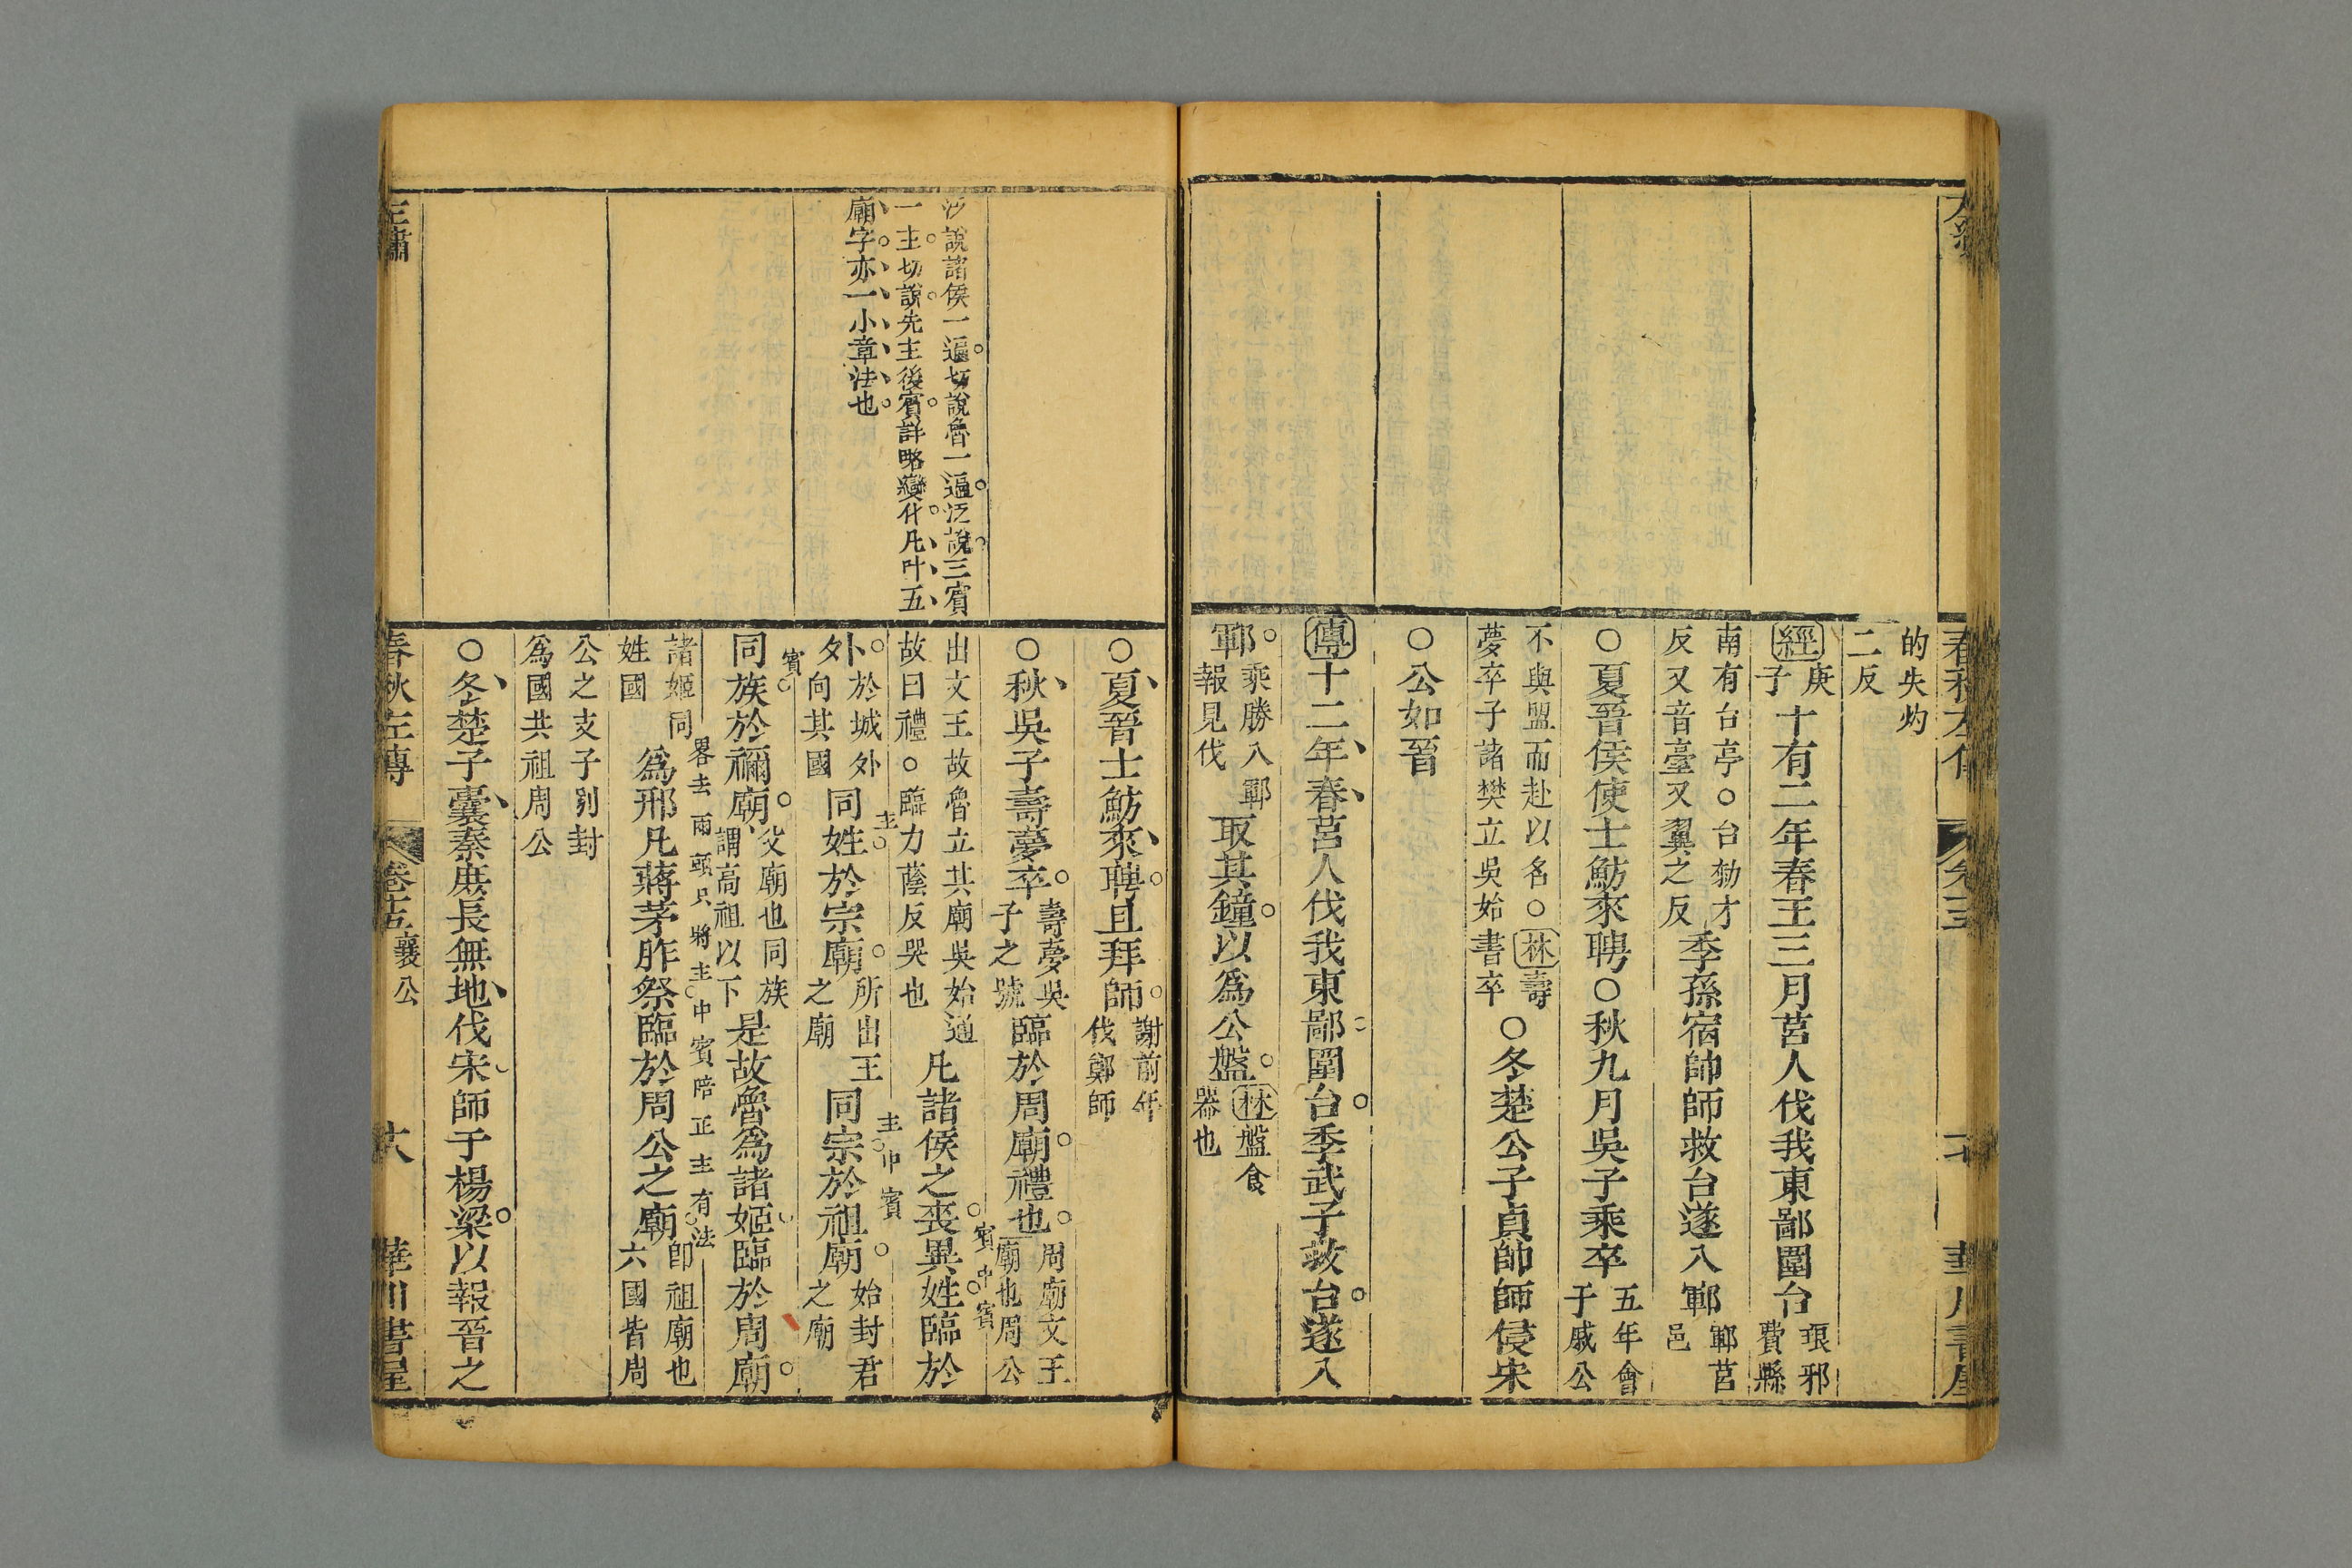 的失灼
二反
經庚子十有二年春王三月莒人伐我東鄙圍台琅邪費縣
南有台亭○台勑才反又音臺又翼之反季孫宿帥師救台遂入鄆鄆莒邑
○夏晉侯使士魴來聘○秋九月吳子乘卒五年會于戚公
不與盟而赴以名○林壽夢卒子諸樊立吳始書卒○冬楚公子貞帥師侵宋
○公如晉
傳十二年春莒人伐我東鄙圍台季武子救台遂入
鄆乘勝入鄆報見伐取其鐘以爲公盤林盤食器也
說諸侯一遍切說魯一遍泛說三賓
一主切說先主後賓詳略變化凡叶五
廟字亦一小章法也
○夏晉士魴來聘且拜師謝前年伐鄭師
○秋吳子壽夢卒壽夢吳子之號臨於周廟禮也周廟文王廟也周公
出文王故魯立其廟吳始通故曰禮○臨力蔭反哭也凡諸侯之喪異姓臨於
賓中賓
外於城外向其國同姓於宗廟所出王之廟同宗於祖廟始封君之廟
主
主中賓
同族於禰廟父廟也同族謂高祖以下是故魯爲諸姬臨於周廟
賓
諸姬同姓國爲邢凡蔣茅胙祭臨於周公之廟即祖廟也六國皆周
畧去兩頭只將主中賓陪正主有法
公之支子別封爲國共祖周公
○冬楚子囊秦庶長無地伐宋師于楊梁以報晉之
春秋左傳
卷十五襄公
十八
華川書屋